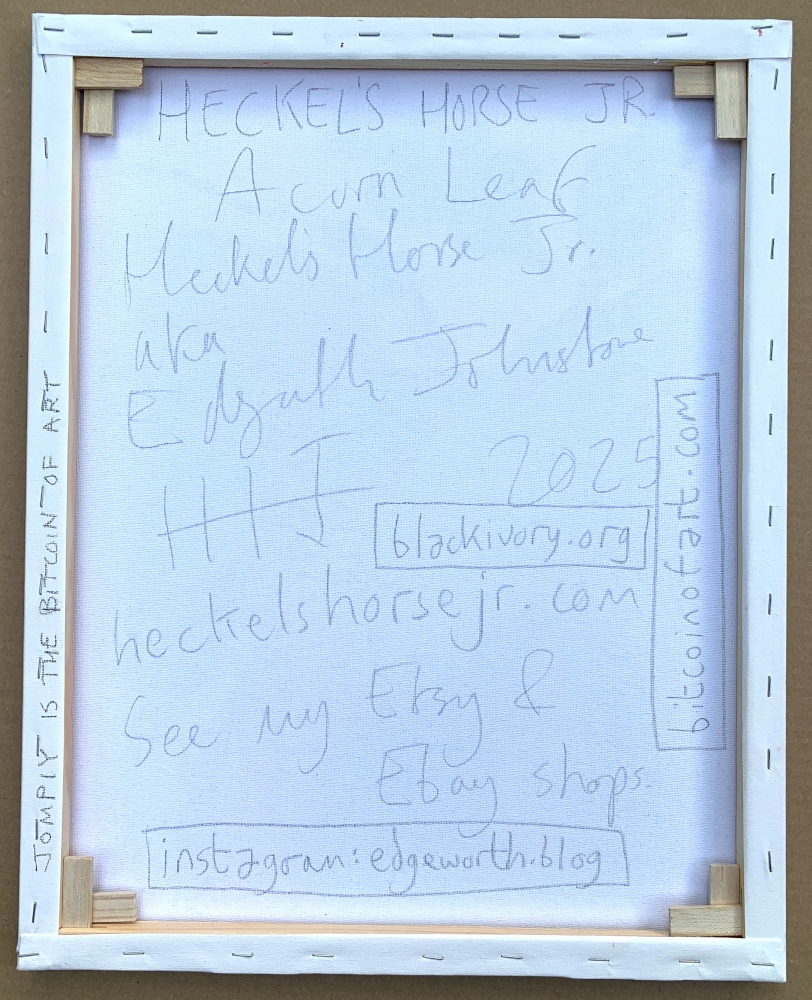 HECKEL'S HORSE JR.
Acorn Leaf
Heckel's Horse Jr.
aka
Edgeworth Johnstone
HHJ 2025
blackivory.org
heckelshorsejr.com
See my Etsy &
Ebay shops.
instagram:edgeworth.blog
bitcoinofart.com
JOMPIY IS THE BITCOIN OF ART